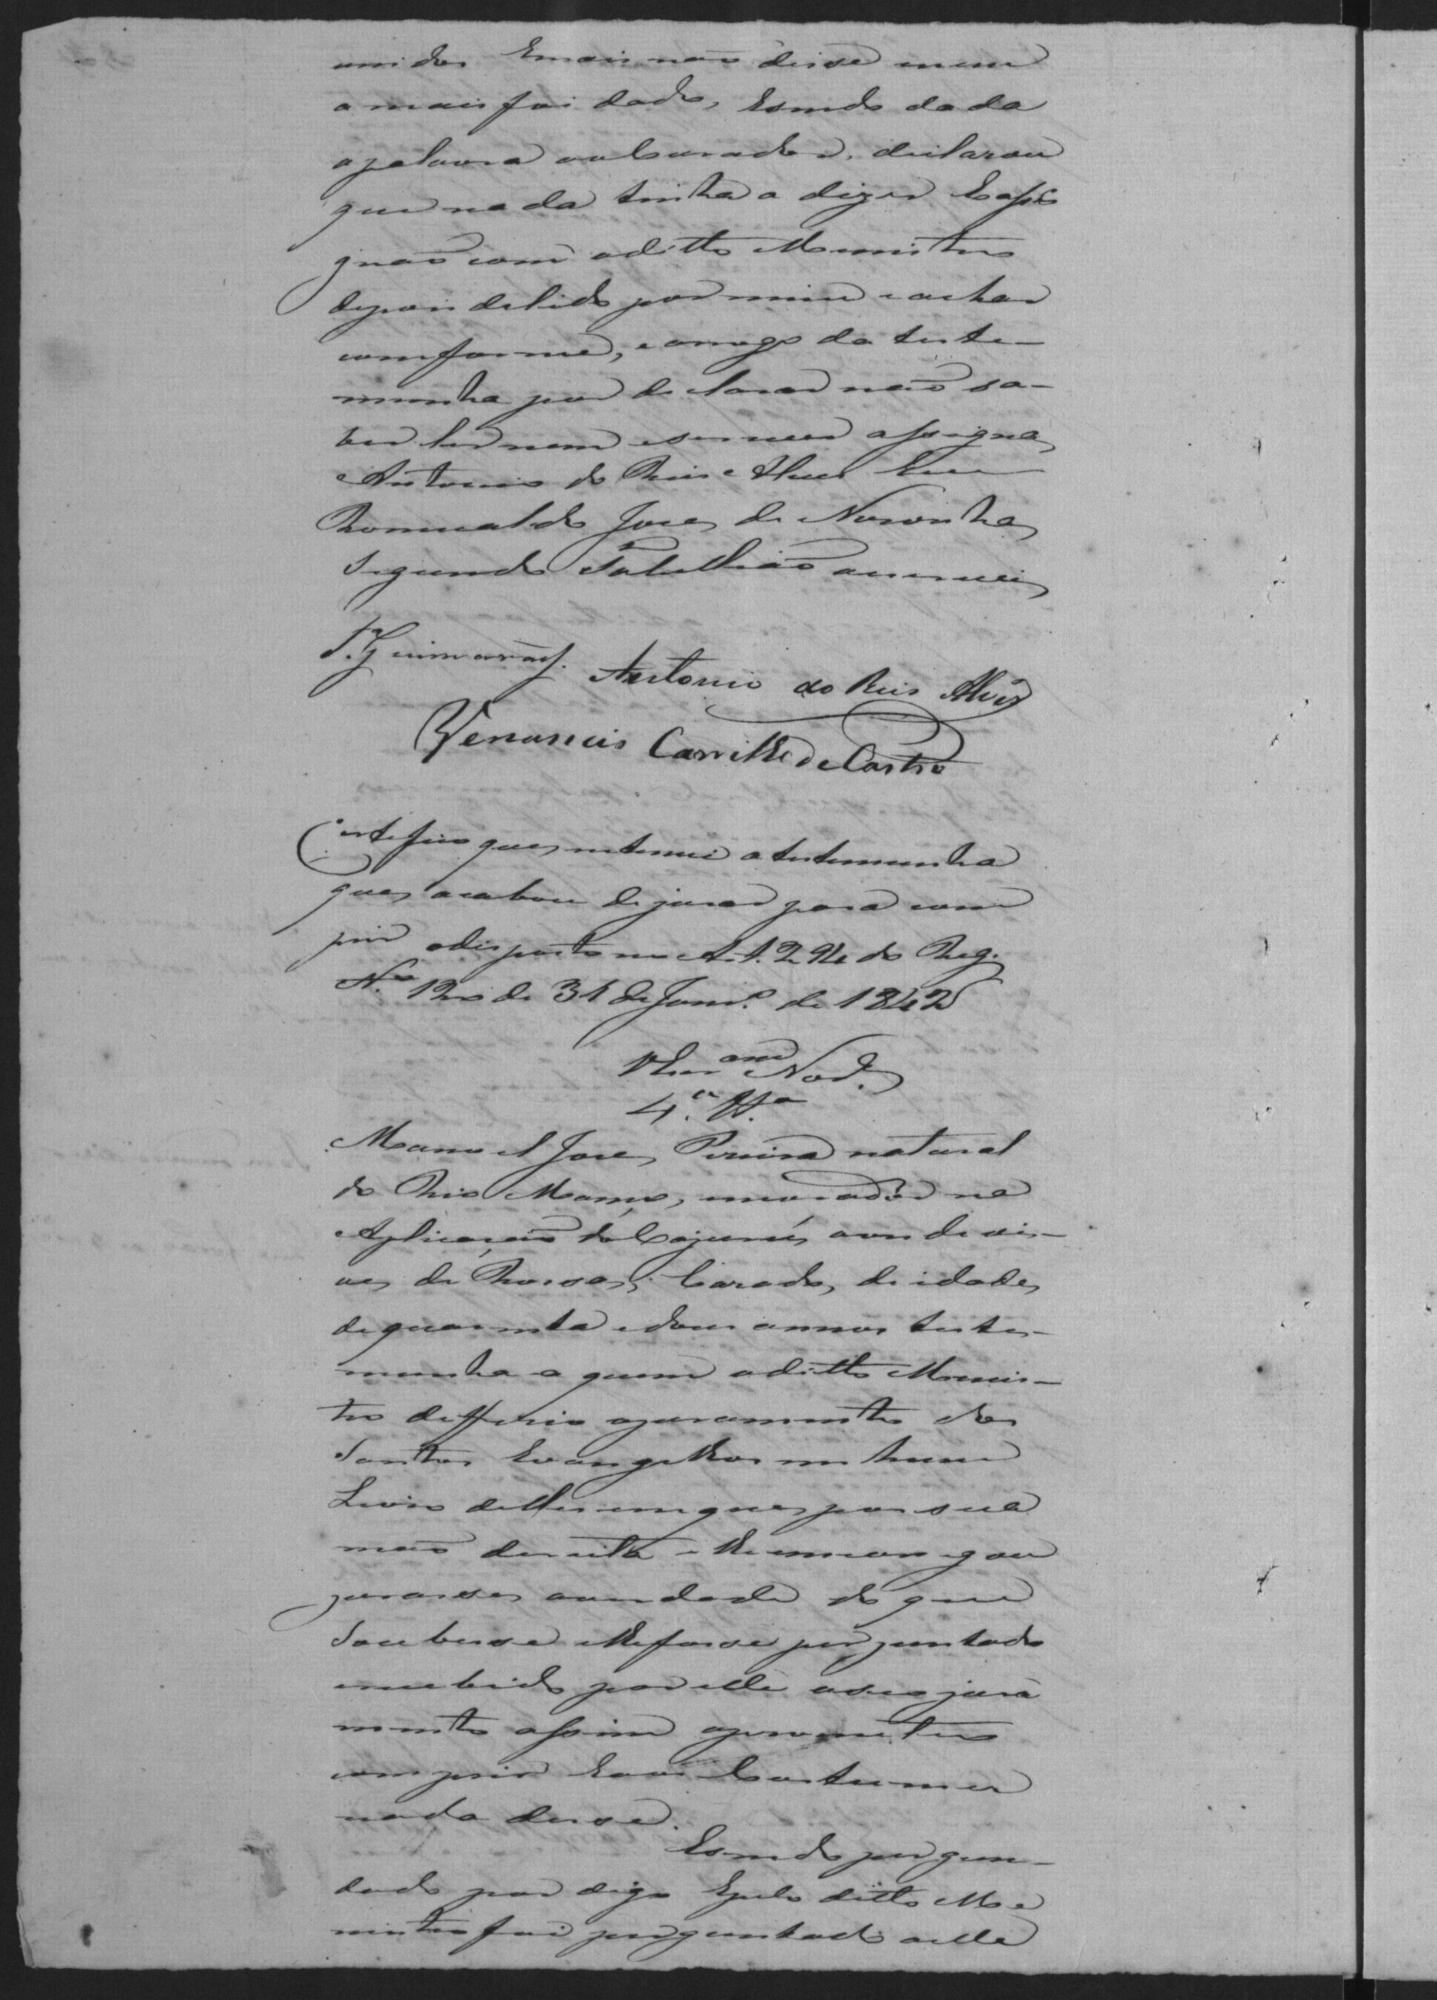 unidos Emais naõ disse nem
a mais foi dado, Esendo dada
apalavra ao Curador, declarou
que nada tinha a dizer Eassi
gnaõ com oditto Menistro
depois delido por mim e achar
comforme, e arrogo da teste-
munha por de clarar naõ sa-
ber ler nem escrever assigna
Antonio do Reis e Alves Eu
Romualdo Jose de Noronha
Segundo Tabelliaõ escrevi
Sz Guimarães. Antonio do Reis Alves
Venancio Carrilho de Castro
Certefico que, notemei a testemunha
que, acabou de jurar para com
prir odisposto no Art. 294 do Reg.
N.º 120 de 31 de Janr.º de 1842
Nor.
4.ª Tt.ª
Manoel Jose, Pereira natural
do Rio Manso, morador na
Aplicaçaõ do Cajurú, aonde vi-
ve, de Rossa, Casado, de idade,
de quarenta e dous annos teste-
munha a quem oditto Menis-
tro defferio ojuramento dos
Santos Evangelhos em hum
Livro delles em que, pos sua
maõ direita e lhe encarregou
jurasse, averdade do que
soubesse e lhe fosse perguntado
erecebido por elle oseo jura
mento assim oprometteo
comprir Eaos Costumes
nada disse.
Esendo pergun-
tado por digo Epelo ditto Me
nistro foi perguntado aelle